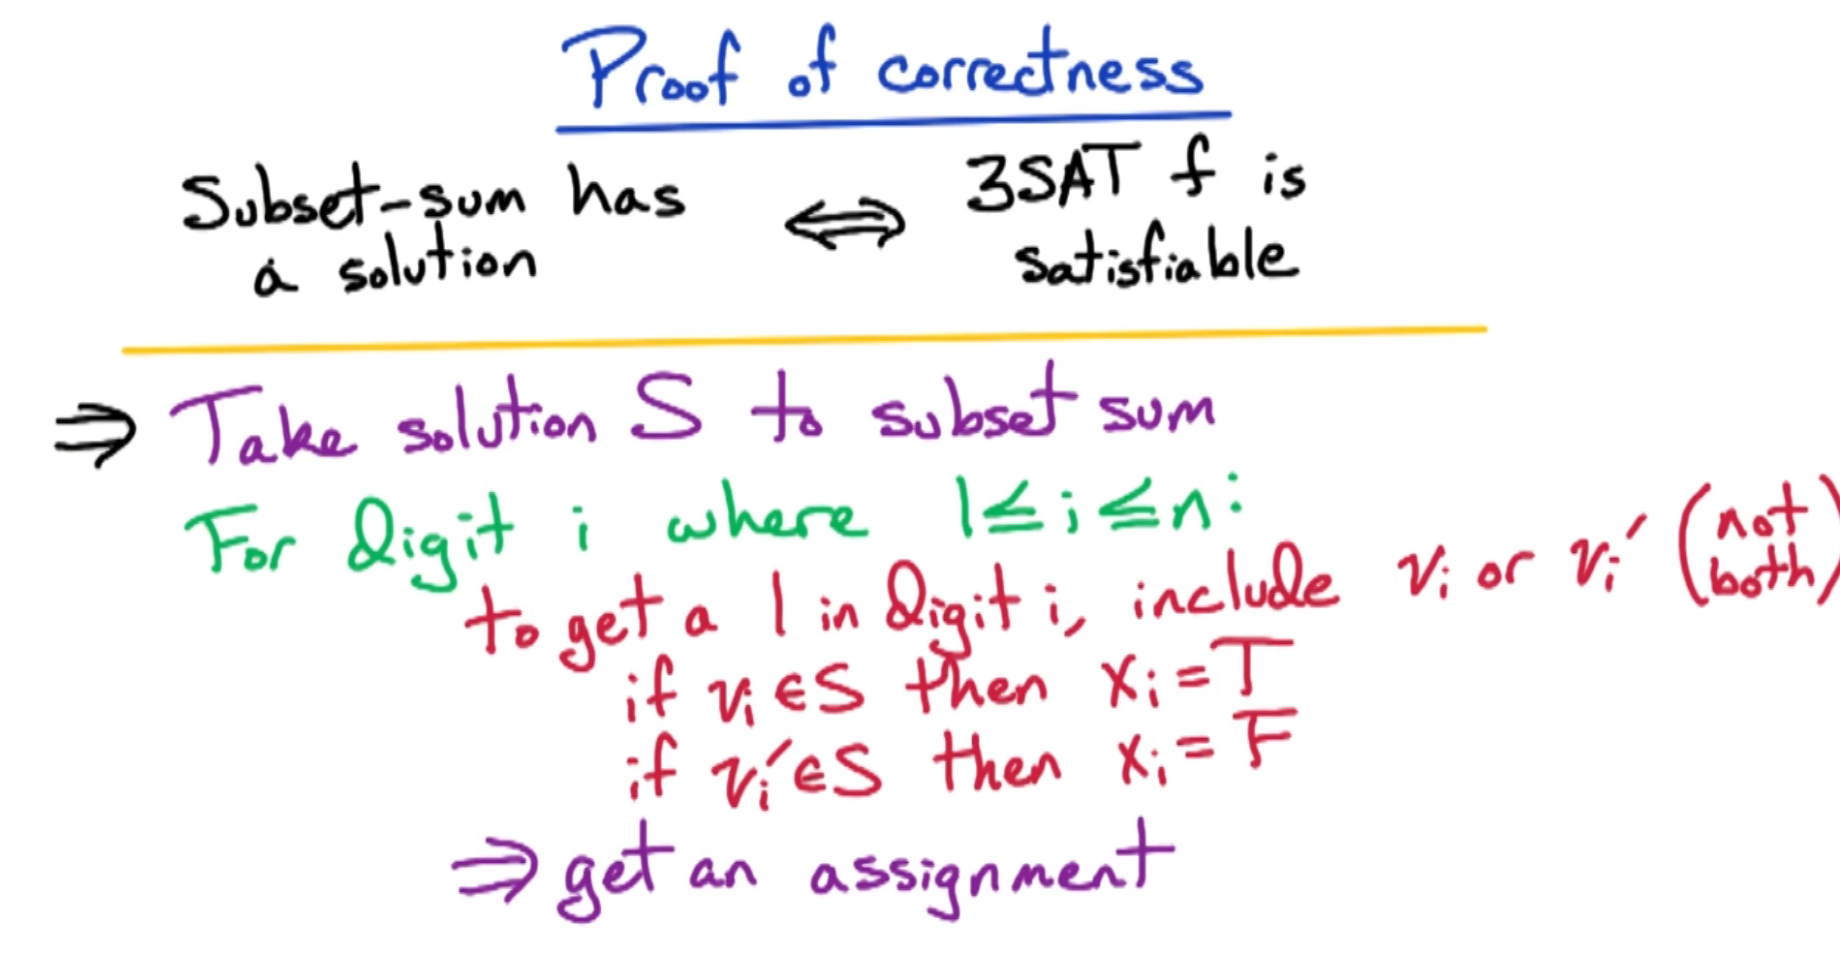 Proof of correctness
Subset-sum has a solution ⇔ 3SAT f is satisfiable
⇒ Take solution S to subset sum
For digit i where 1≤i≤n:
to get a 1 in digit i, include vᵢ or vᵢ′ (not both)
if vᵢ∈S then xᵢ=T
if vᵢ′∈S then xᵢ=F
⇒ get an assignment